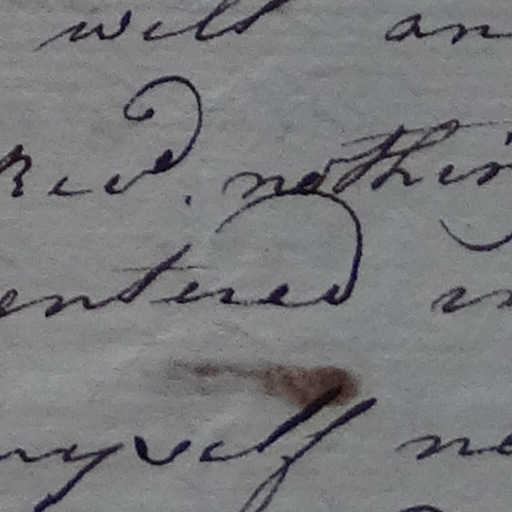 well an
nothin
entered in
myself no